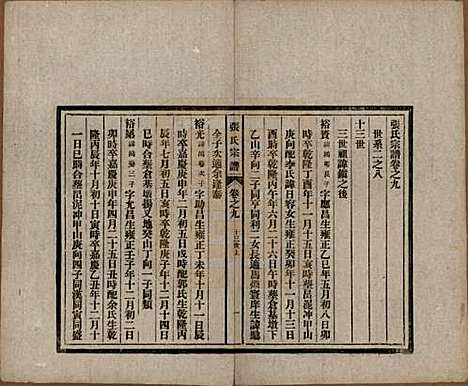 張氏宗譜卷之九
世系二之八
十三世
三世祖諱鎰之後
裕資 祥鴻長子 字應昌生雍正乙巳年五月初八日卯
時卒乾隆丁酉年十一月十五日亥時葬邑泥冲甲山
庚向配李氏諱日容女生雍正癸卯年十一月十三日
午時卒乾隆丙午年六月二十六日午時葬倉基墩下
乙山辛向二子同亨同利二女長適馬煩
張氏宗譜 卷之九 十三世上 一
全子次適余逢泰
裕光 祥鴻次子 字助昌生雍正丁未年十月十一日辰
時卒嘉慶庚申年二月初五日戌時配郭氏生乾隆丙
辰年七月初五日亥時卒乾隆庚子年十二月十四日
巳時合葬倉基墳揚叉地癸山丁向一子同類
裕第 祥鴻三子 字士昌生雍正壬子年十二月初二日
卯時卒嘉慶庚申年四月二十五日丑時配余氏生乾
隆丙辰年十月初十日寅時卒嘉慶乙丑年十二月十
一日巳時合葬邑泥冲甲山庚向四子同漢同寅同盛